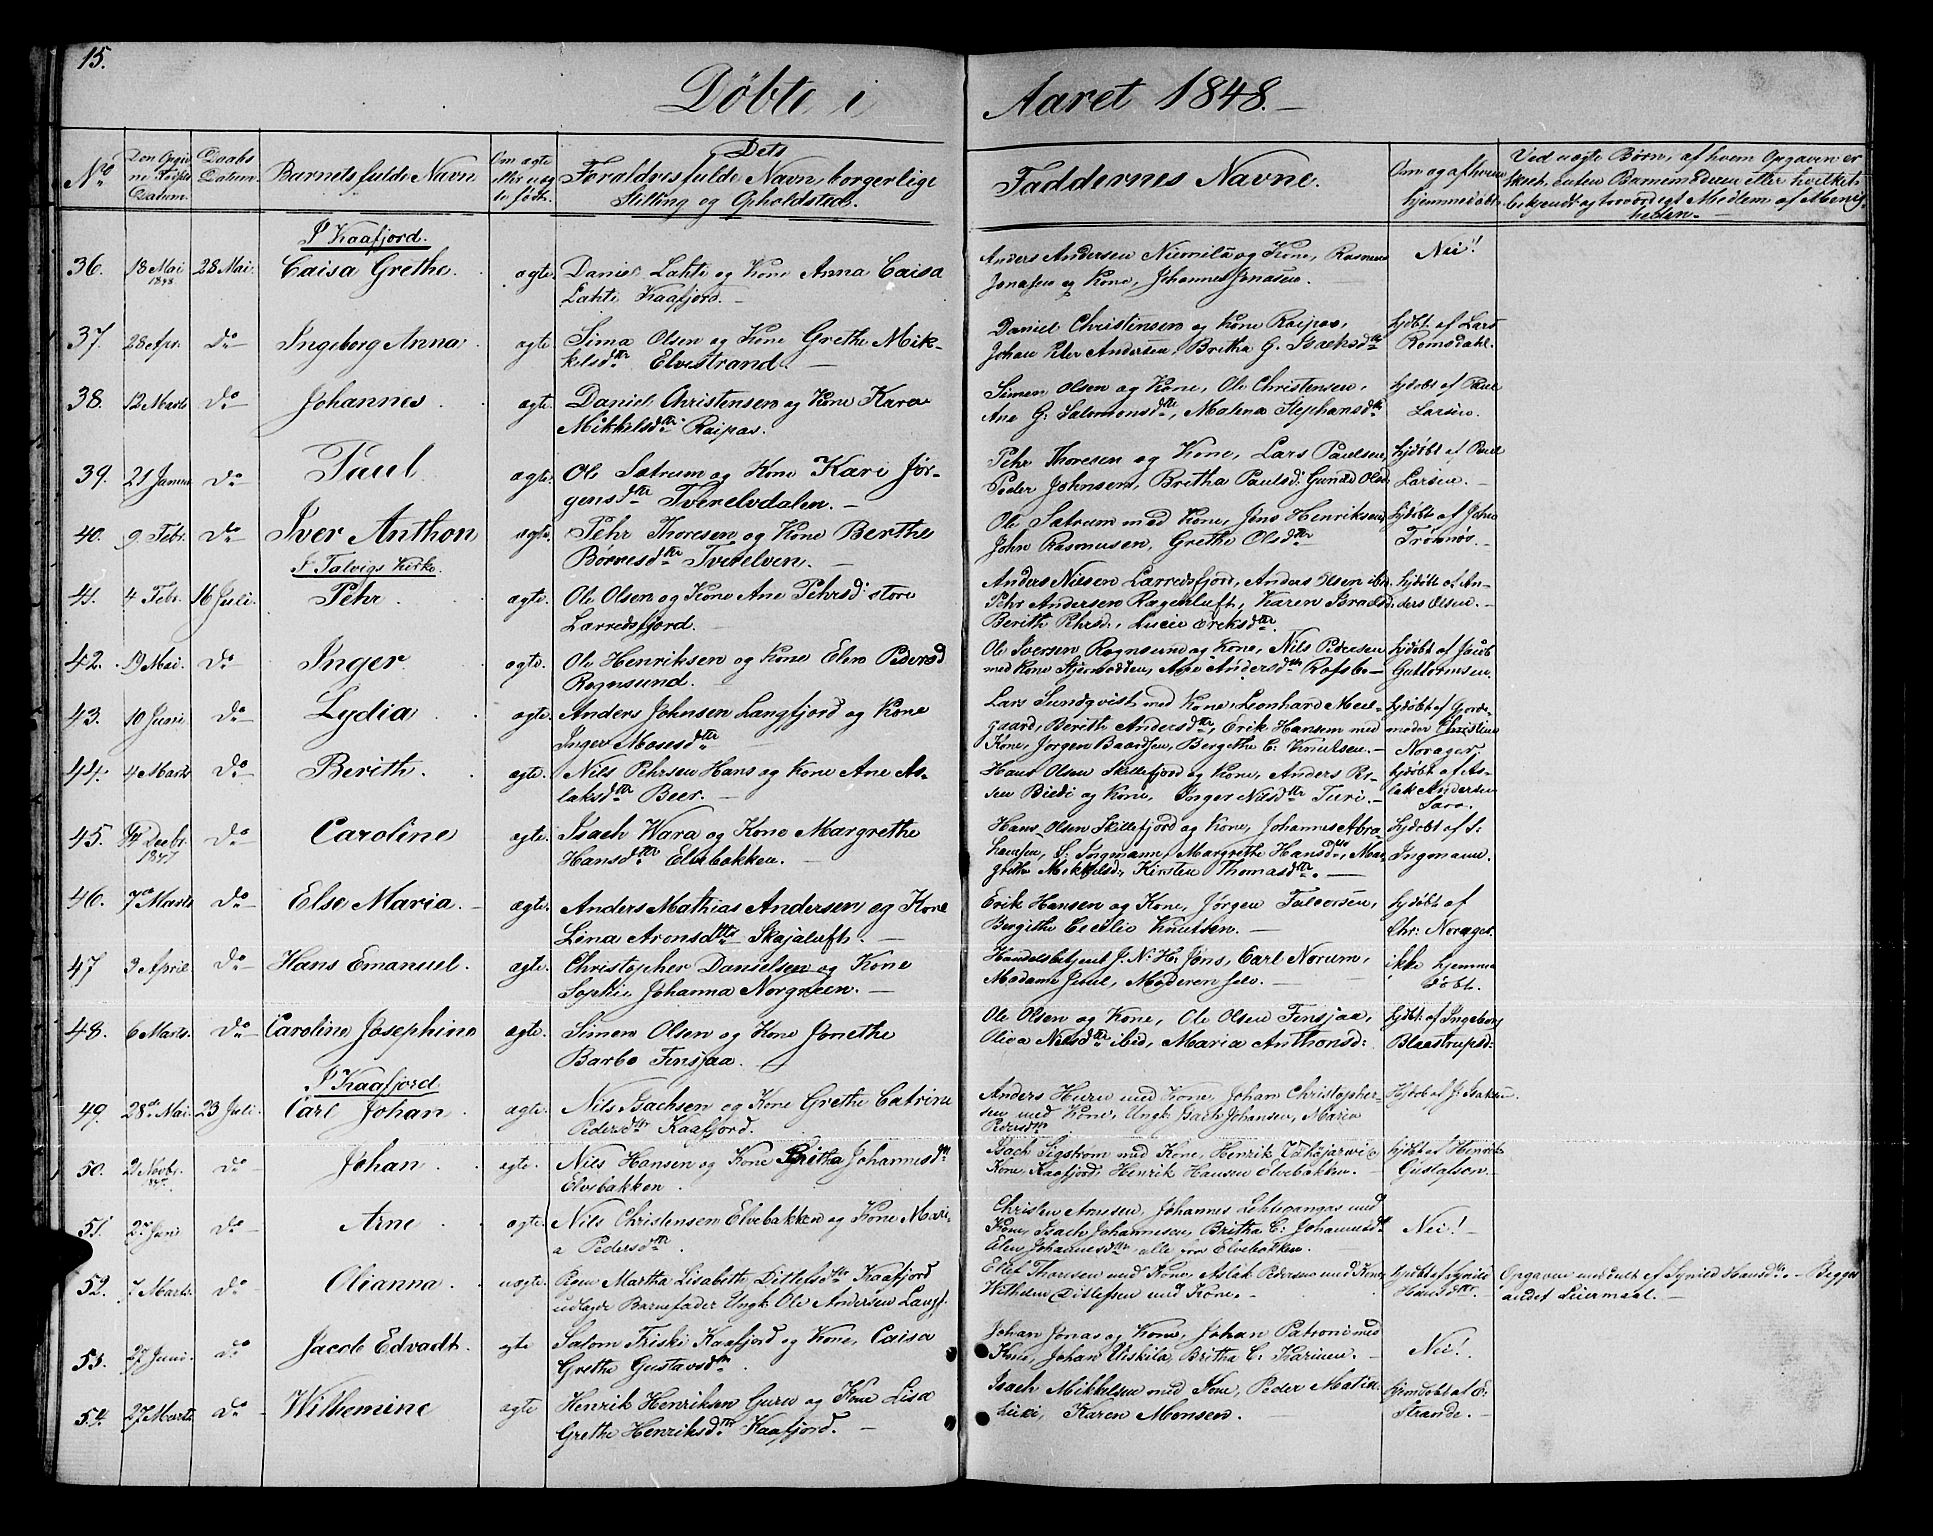 15.
Döbte i Aaret 1848.
No
Den Opgivne Fødsels Datum.
Daabs Datum.
Barnets fulde Navn
Om ægte eller uægte født.
Dets Forældres fulde Navn, borgerlige Stilling og Opholdsted.
Faddernes Navne.
Om og af hvem hjemmedøbt
Ved uægte Børn, af hvem Opgaven er skeet, enten Barnemoderen eller hvilket bekjendt og troværdigt Medlem af Menigheden.
I Kaafjord.
36. 18 Mai 1848 28 Mai. Caisa Grethe. ægte. Daniel Lahti og Kone Anna Caisa
Lahti Kaafjord.
Anders Andersen Niemilä og Kone, Rasmus
Jonasen og Kone, Johannes Jonasen.
Nei!
37. 28 Apr. Do Ingeborg Anna. ægte. Sima Olsen og Kone Grethe Mik-
kelsdtr Elvestrand.
Daniel Christensen og Kone Raipas,
Johan Peter Andersen, Britha G. Isaksdtr
hjdöbt af Lars
Romsdahl.
38. 12 Marts Do Johannes. ægte. Daniel Christensen og Kone Karen
Mikkelsdtr Raipas.
Simen Olsen og Kone, Ole Christensen,
Ane G. Salomonsdtr, Malena Stephansdtr
hjdöbt af Paul
Larsen.
39. 21 Januar Do Paul ægte. Ole Sætrum og Kone Kari Jör-
gensdtr Tverelvdalen.
Pehr Thoresen og Kone, Lars Paulsen,
Peder Johnsen, Britha Paulsd: Guned Olsd
hjdöbt af Paul
Larsen.
40. 9 Febr. Do Iver Anthon ægte. Pehr Thoresen og Kone Berthe
Börresdtr Tverelven.
Ole Sætrum med Kone, Jens Henriksen,
John Rasmusen, Grethe Olsdtr
hjdöbt af John
Tromnös.
I Talvigs Kirke.
41. 4 Febr. 16 Juli. Pehr. ægte. Ole Olsen og Kone Ane Pehrsd: store
Larredsfjord.
Anders Nilsen Larredsfjord, Anders Olsen ibd.
Pehr Andersen Ragerluft, Karen Israelsd.
Berith Pehrsd:, Lucie Ereksdtr
hjdöbt af An-
ders Olsen.
42. 19 Mai. Do Inger ægte. Ole Henriksen og Kone Elen Pedersd
Rognsund.
Ole Iversen Rognsund og Kone, Nils Pedersen
med Kone Stjernodden, Ane Andersdtr Rafsbo
hjdöbt af Jacob
Guttormsen.
43. 10 Juni Do Lydia ægte. Anders Johnsen Langfjord og Kone
Inger Mosesdtr
Lars Sundqvist med Kone, Leonhard Meel-
gaard, Berith Andersdtr, Erik Hansen med
Kone, Jörgen Baardsen, Bergethe C. Knutsen.
hjdöbt af Jorde-
moder Christine
Norager.
44. 4 Marts Do Berith. ægte. Nils Pehrsen Hans og Kone Ane As-
laksdtr Beer.
Hans Olsen Skillefjord og Kone, Anders
sen Biedi og Kone, Inger Nilsdtr Turi.
hjdöbt af As-
lak Andersen
Sara.
45. 14 Decbr. 1847 Do Caroline ægte. Isach Wara og Kone Margrethe
Hansdtr Elvebakken.
Hans Olsen Skillefjord og Kone, Johannes Abra-
hamsen, S: Ingmann, Margrethe Hansdtr, Mar-
grethe Mikkelsd:, Kirsten Thomasdtr.
hjdöbt af S:
Ingmann.
46. 7 Marts Do Else Maria. ægte. Anders Mathias Andersen og Kone
Lena Aronsdtr Skajaluft.
Erik Hansen og Kone, Jörgen
Bergithe Cecilie Knutsen.
hjdöbt af
Chr: Norager.
47 3 April. Do Hans Emanuel. ægte. Christopher Danielsen og Kone
Sophie Johanna Norgreen.
Handelsbetjent J. N. H. Jøns, Carl Norum,
Madame, Moderen selv.
ikke hjemme
döbt.
48. 6 Marts. Do Caroline Josephine ægte. Simon Olsen og Kone Jonethe
Barbo Finsjaa.
Ole Olsen og Kone, Ole Olsen Finsjaa,
Oliva Nilsdtr ibid, Maria Anthonsd:
hjdöbt af Ingeborg
Blaastrupsd:
I Kaafjord
49. 28de Mai. 23 Juli. Carl Johan. ægte. Nils Isachsen og Kone Grethe Catrina
Pedersdtr Kaafjord.
Anders Huru med Kone, Johan Christopher-
sen med Kone, Ungk. Isach Johansen, Maria
Pedersdtr
Hjdöb af J: Isaksen.
50. 21 Novbr. 1847. Do Johan. ægte. Nils Hansen og Kone Britha Johannesdtr
Elvebakken.
Isach Sigström med Kone, Henrik med
Kone Kaafjord, Henrik Hansen Elvebakken.
hjdöbt af Henrik
Gustafsen.
51. 2 Juni Do Arne ægte. Nils Christensen Elvebakken og Kone Mari-
a Pedersdtr.
Christen Arnesen, Johannes Lehtigangas med
Kone, Isach Johannesen, Britha C: Johannesdtr
Elen Johannesdtr, alle fra Elvebakken.
Nei!
52. 7 Marts. Do Olianna. uægte. Pigen Martha Lisabeth Ditlefsdtr Kaafjord
udlagde Barnefader Ungk. Ole Andersen Langf.
Elet Thomsen med Kone, Aslak Pedersen med Kone
Wilhelm Ditlefsen med Kone.
hjdöbt af Synild
Hansdtr
Opgaven meddelt af Synild Hansdtr. – Begges
andet Leiermaal.
53. 27 Juni. Do Jacob Edvardt. ægte Salom Friski Kaafjord og Kone, Caisa
Grethe Gustavsdtr.
Johan Jonas og Kone, Johan Patroni med
Kone, Johan Uiskila, Britha C: Karinen.
Nei!
54. 27 Marts Do Wilhemine ægte Henrik Henriksen Guru og Kone Lisa
Grethe Henriksdtr Kaafjord.
Isach Mikkelsen med Kone, Peder Matia
Luki, Karen Monsen.
hjemdöbt af E:
Strande.